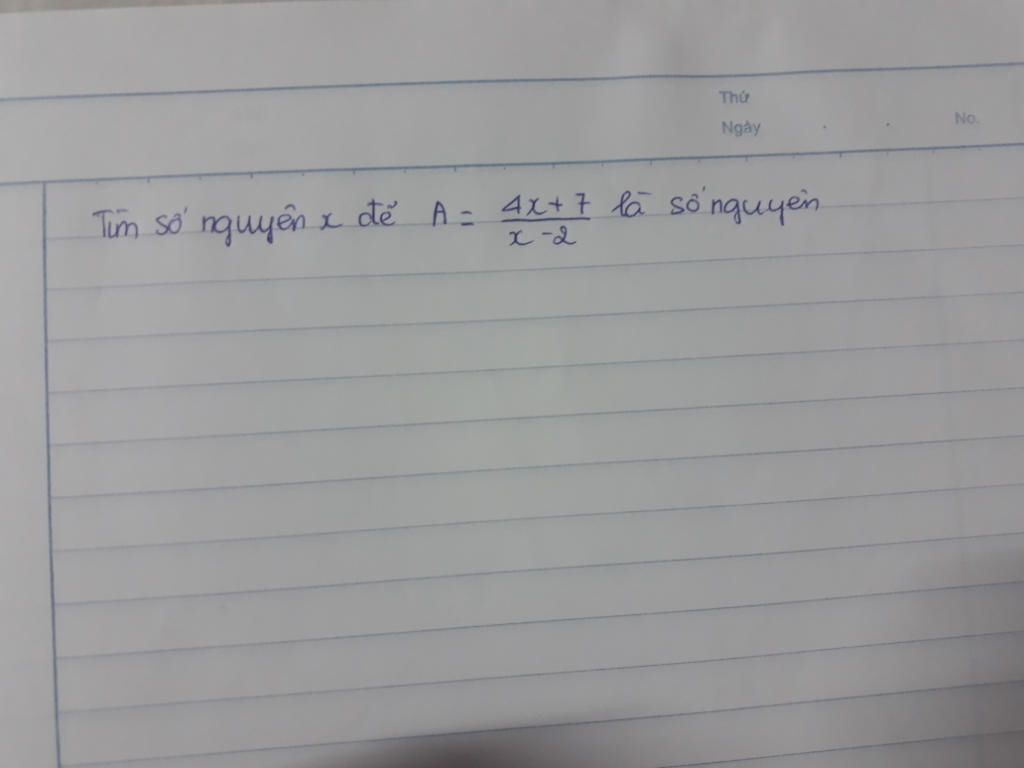 Thứ
Ngày . . No.
Tìm số nguyên x để A = \frac{4x+7}{x-2} là số nguyên